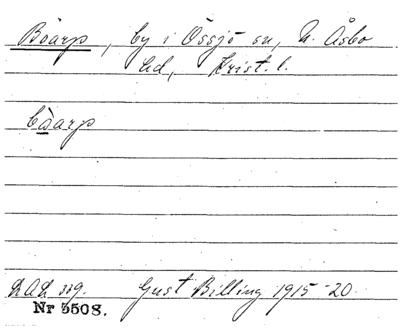 Böarp, by i Össjö sn, N. Åsbo
hd, Krist. l.
bòarp
LAL 339. Gust Billing 1915-20.
Nr 3508.